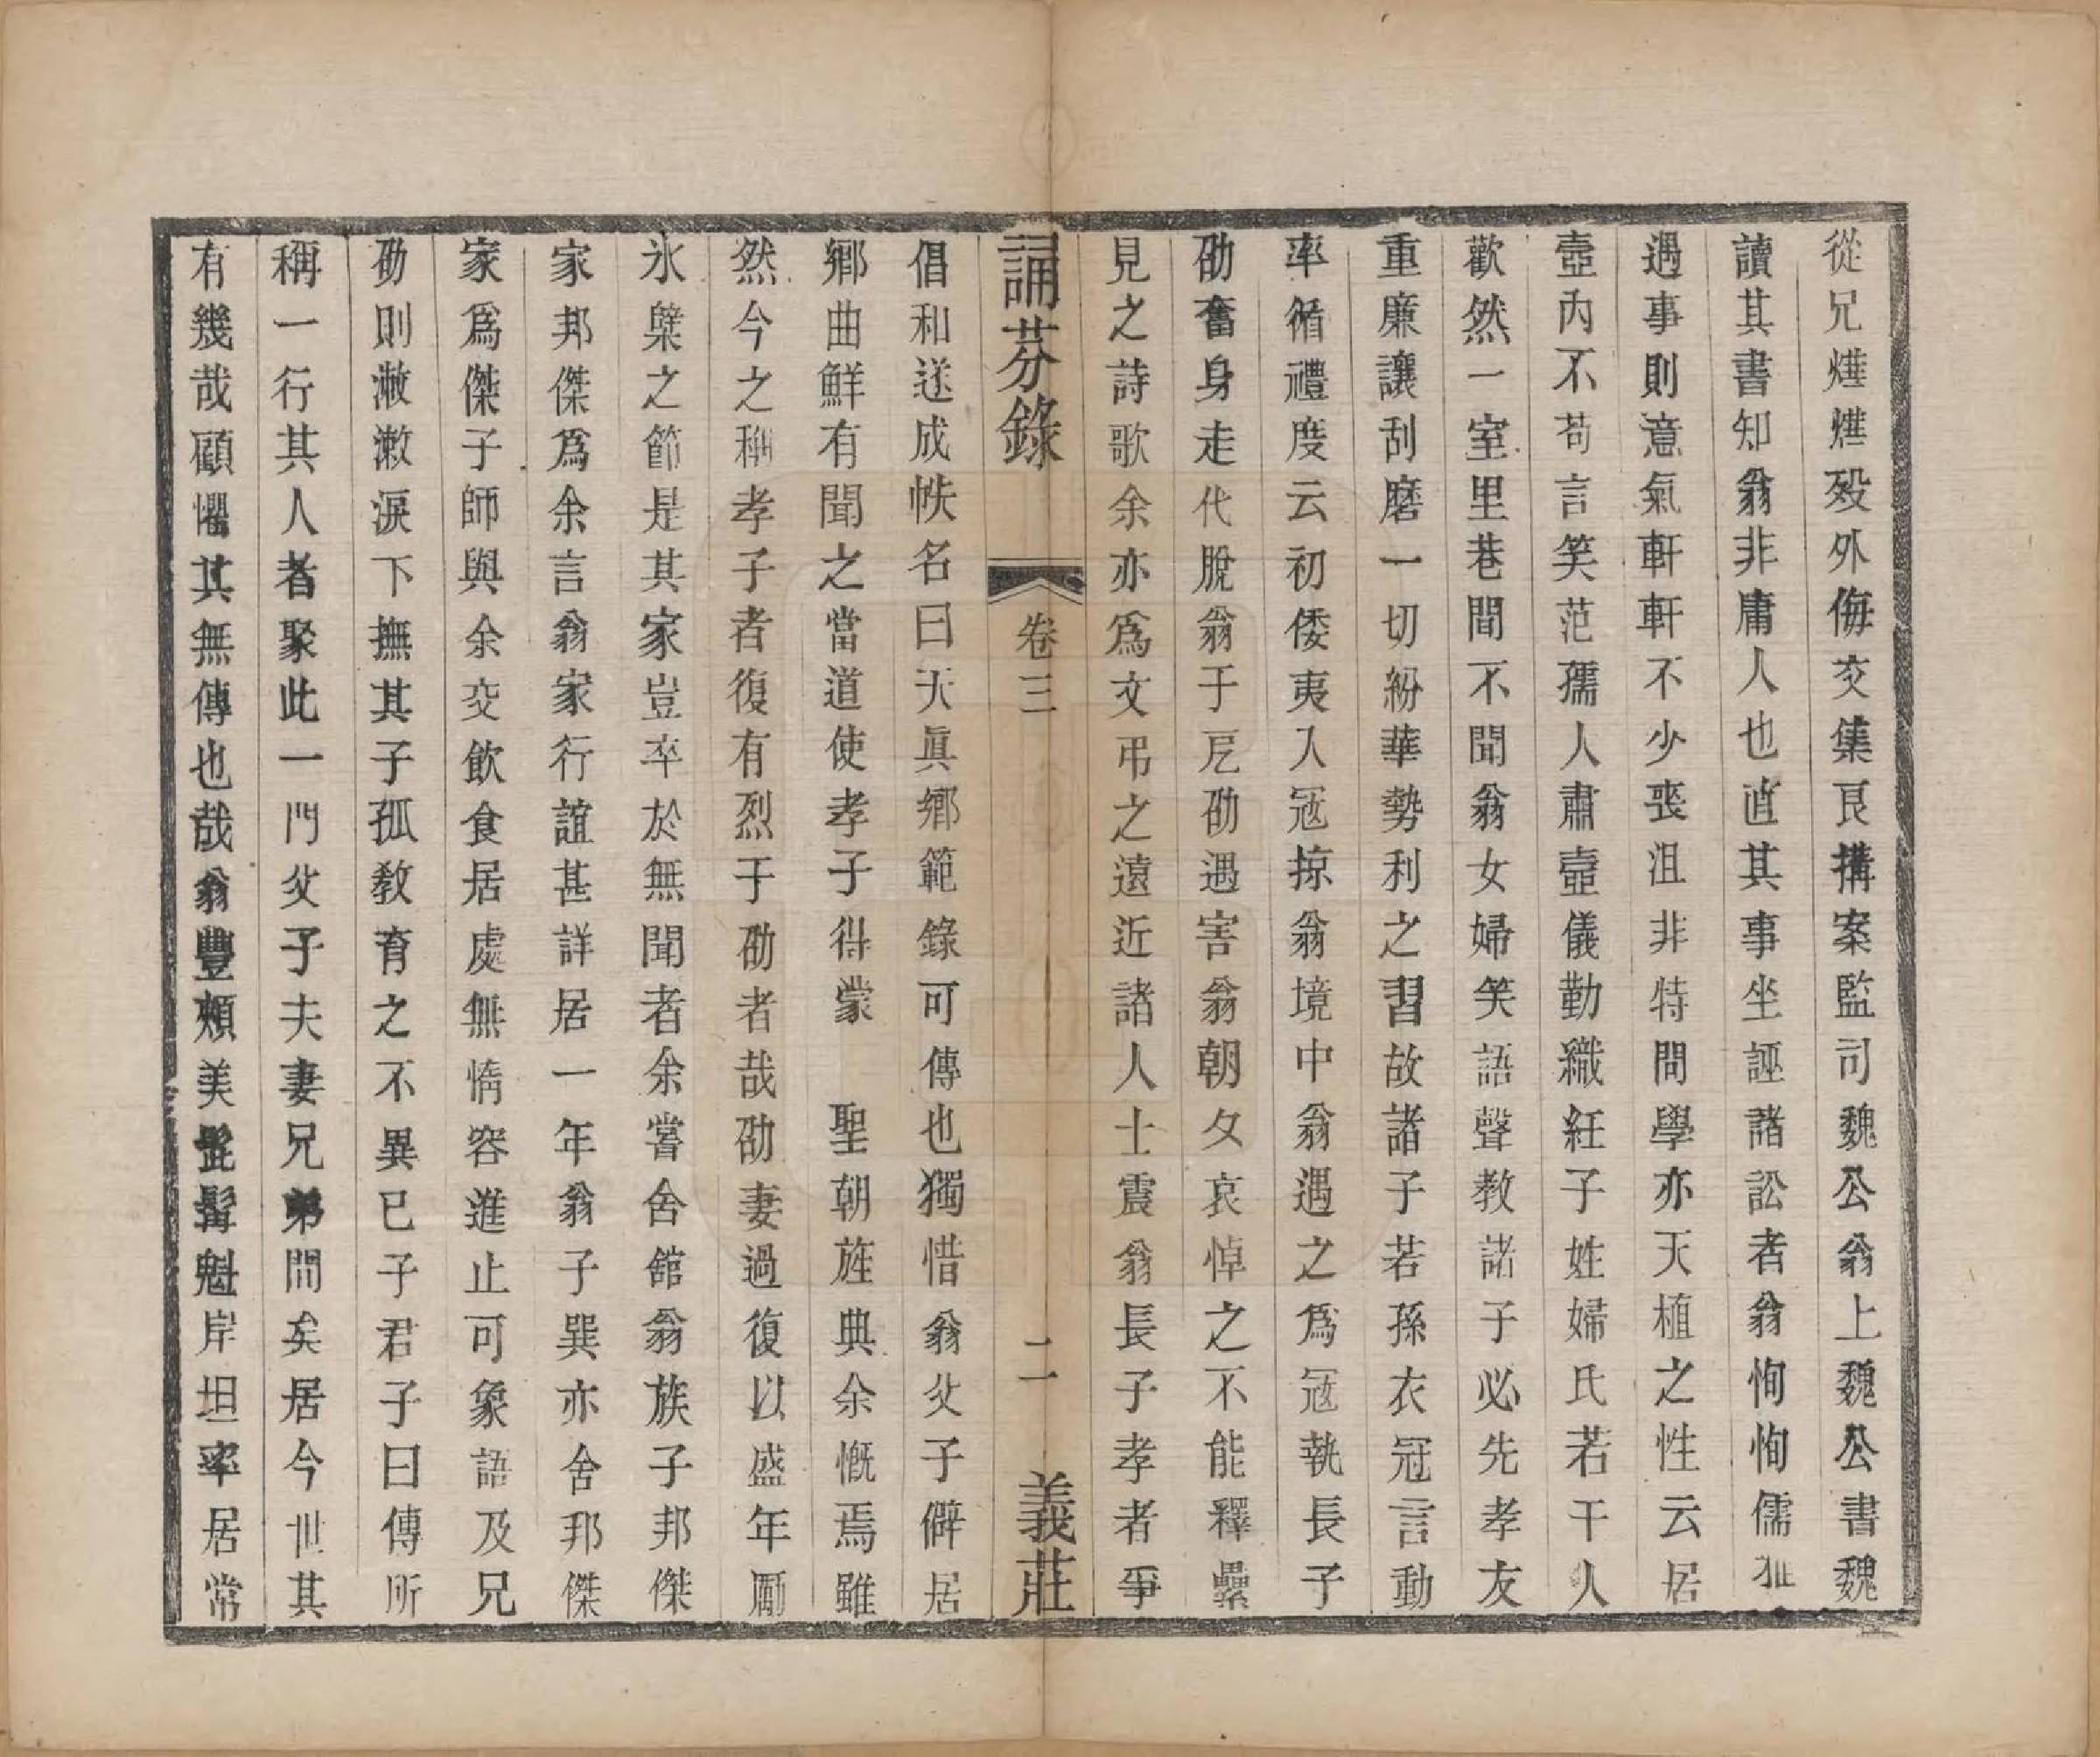 從兄爗爗歿外侮交集艮搆案監司魏公翁上魏公書魏
讀其書知翁非庸人也直其事坐誣諸訟者翁恂恂儒雅
遇事則意氣軒軒不少喪沮非特問學亦天植之性云居
壼內不苟言笑范孺人肅壼儀勤織紝子姓婦氏若干人
歡然一室里巷間不聞翁女婦笑語聲教諸子必先孝友
重廉讓刮磨一切紛華勢利之習故諸子若孫衣冠言動
率循禮度云初倭夷入寇掠翁境中翁遇之爲寇執長子
劭奮身走代脫翁于戹劭遇害翁朝夕哀悼之不能釋纍
見之詩歌余亦爲文弔之遠近諸人士震翁長子孝者爭
誦芬錄 卷三 二 義莊
倡和送成帙名曰天眞鄉範錄可傳也獨惜翁父子僻居
鄉曲鮮有聞之當道使孝子得蒙 聖朝旌典余慨焉雖
然今之稱孝子者復有烈于劭者哉劭妻過復以盛年勵
氷檗之節是其家豈卒於無聞者余嘗舍舘翁族子邦傑
家邦傑爲余言翁家行誼甚詳居一年翁子巽亦舍邦傑
家爲傑子師與余交飲食居處無惰容進止可象語及兄
劭則潎潎淚下撫其子孤教育之不異已子君子曰傳所
稱一行其人者聚此一門父子夫妻兄弟間矣居今世其
有幾哉顧懼其無傳也哉翁豐頰美髭髯魁岸坦率居常